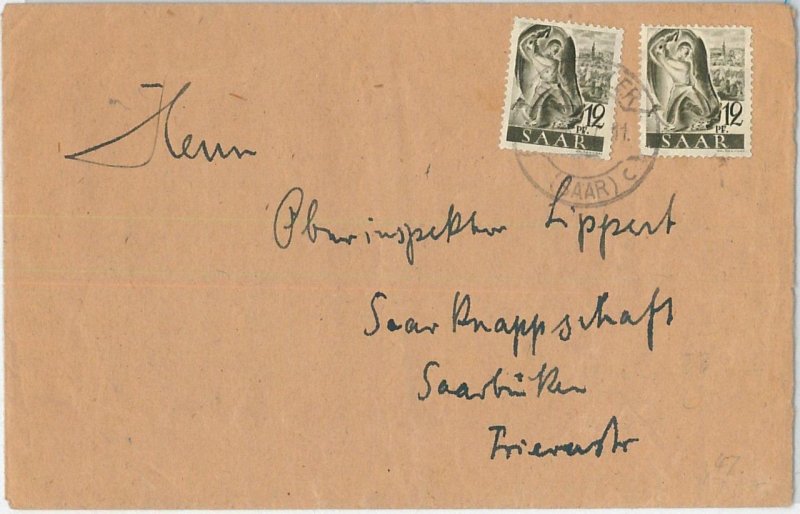 12 PF.
SAAR
12 PF.
SAAR
(SAAR) c
Herrn
Oberinspektor Lippert
Saarknappschaft
Saarbrüken
Triererstr
47.